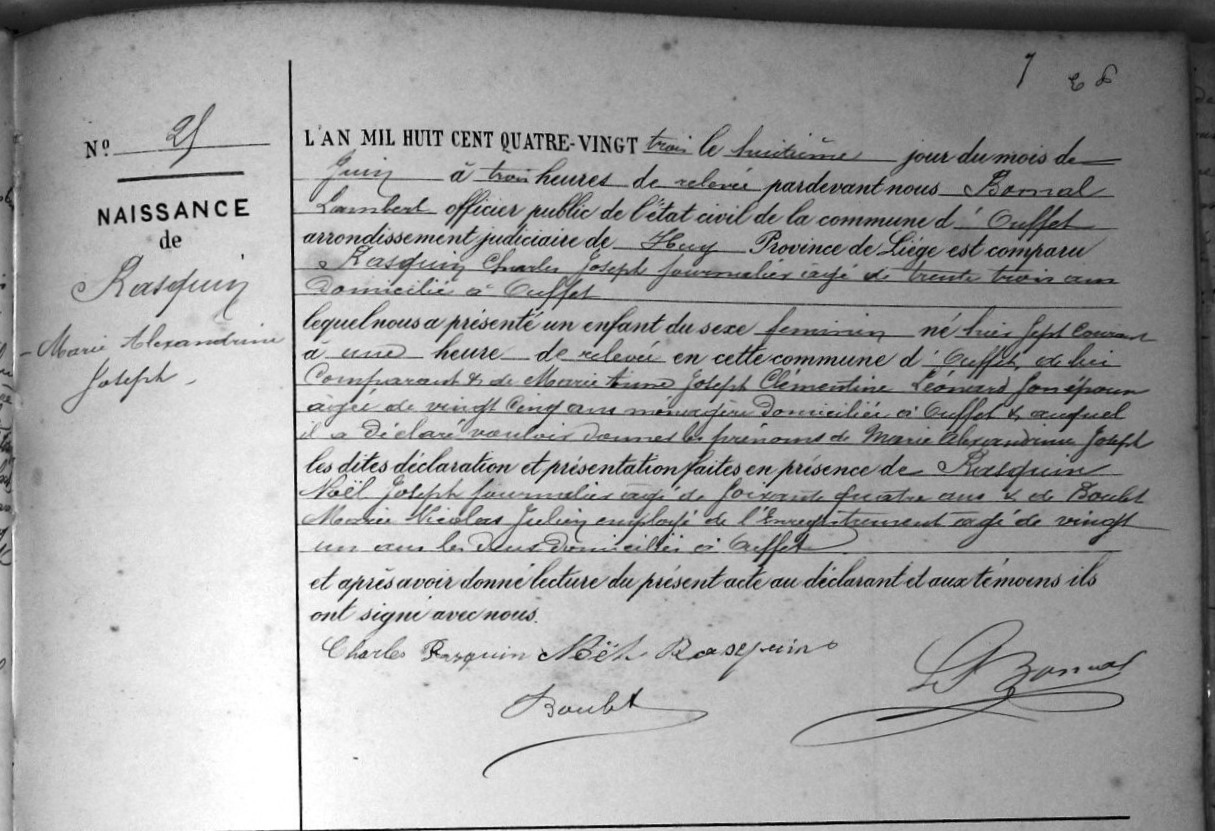 7
Nº 25
NAISSANCE
de
Rasquin
Marie Alexandrine
Joseph
L'AN MIL HUIT CENT QUATRE-VINGT trois le huitième jour du mois de
Juin à trois heures de relevée pardevant nous Bomal
Lambert officier public de l'état civil de la commune d'Ouffet
arrondissement judiciaire de Huy Province de Liége est comparu
Rasquin Charles Joseph journalier agé de trente trois ans
domicilié à Ouffet
lequel nous a présenté un enfant du sexe feminin né hier sept courant
à une heure de relevée en cette commune d'Ouffet, de lui
comparant & de Marie Anne Joseph Clémentine Léonard son épouse
agée de vingt cinq ans ménagère domiciliée à Ouffet & auquel
il a déclaré vouloir donner les prénoms de Marie Alexandrine Joseph
les dites déclaration et présentation faites en présence de Rasquin
Noël Joseph journalier agé de soixante quatre ans & de Boulet
Marie Nicolas Julien employé de l'Enregistrement agé de vingt
un ans les deux domiciliés à Ouffet
et après avoir donné lecture du présent acte au déclarant et aux témoins ils
ont signé avec nous.
Charles Rasquin Noël Rasquin
Boulet
L Bomal